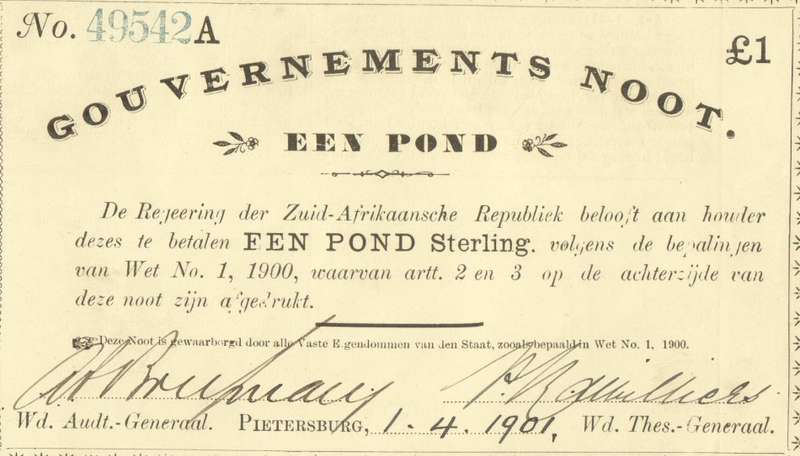 No. 49542 A
£1
GOUVERNEMENTS NOOT.
EEN POND
De Regeering der Zuid-Afrikaansche Republiek belooft aan houder
dezes te betalen EEN POND Sterling. volgens de bepalingen
van Wet No. 1, 1900, waarvan artt. 2 en 3 op de achterzijde van
deze noot zijn afgedrukt.
Deze Noot is gewaarborgd door alle Vaste Eigendommen van den Staat, zooals bepaald in Wet No. 1, 1900.
Wd. Audt.-Generaal. PIETERSBURG, 1 - 4. 1901. Wd. Thes.-Generaal.